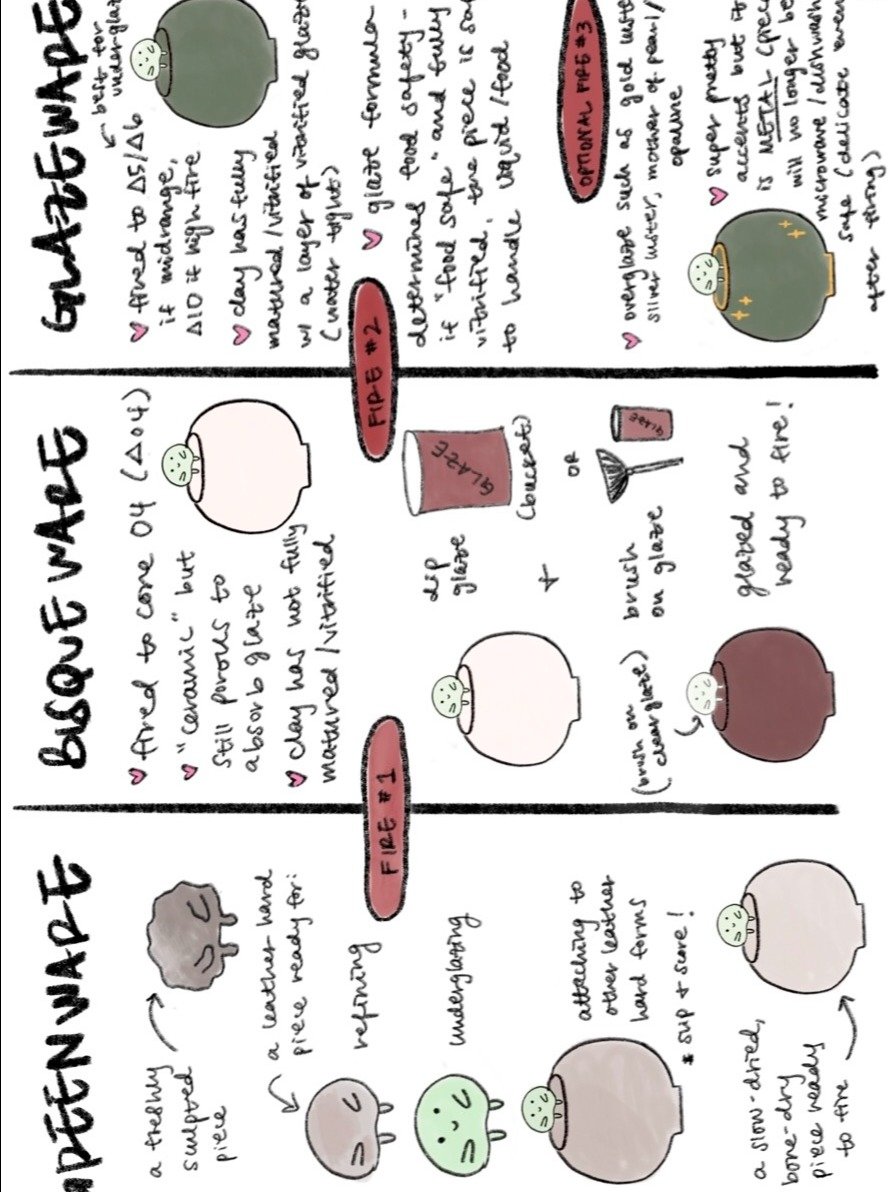 REENWARE
a freshly
sculpted
piece
a leather hard
piece ready for:
refining
underglazing
attaching to
other leather
hard forms
* slip + score!
a slow-dried,
bone-dry
piece ready
to fire
FIRE #1
BISQUEWARE
fired to cone 04 (Δ04)
"ceramic" but
still porous to
absorb glaze
clay has not fully
matured/vitrified
dip
glaze
+
GLAZE
(bucket)
OR
brush
on glaze
GLAZE
(brush on
clear glaze)
glazed and
ready to fire!
FIRE #2
GLAZEWARE
best for
undergla
fired to Δ5/Δ6
if midrange,
Δ10 if high fire
clay has fully
matured/vitrified
w/ a layer of vitrified glaze
(water tight)
glaze formula
determines food safety -
if "food safe" and fully
vitrified, the piece is saf
to handle liquid/food
OPTIONAL FIRE #3
overglaze such as gold lust
silver luster, mother of pearl/
opaline
super pretty
accents but it
is METAL (prec
will no longer be
microwave/dishwash
safe (delicate even
after firing)